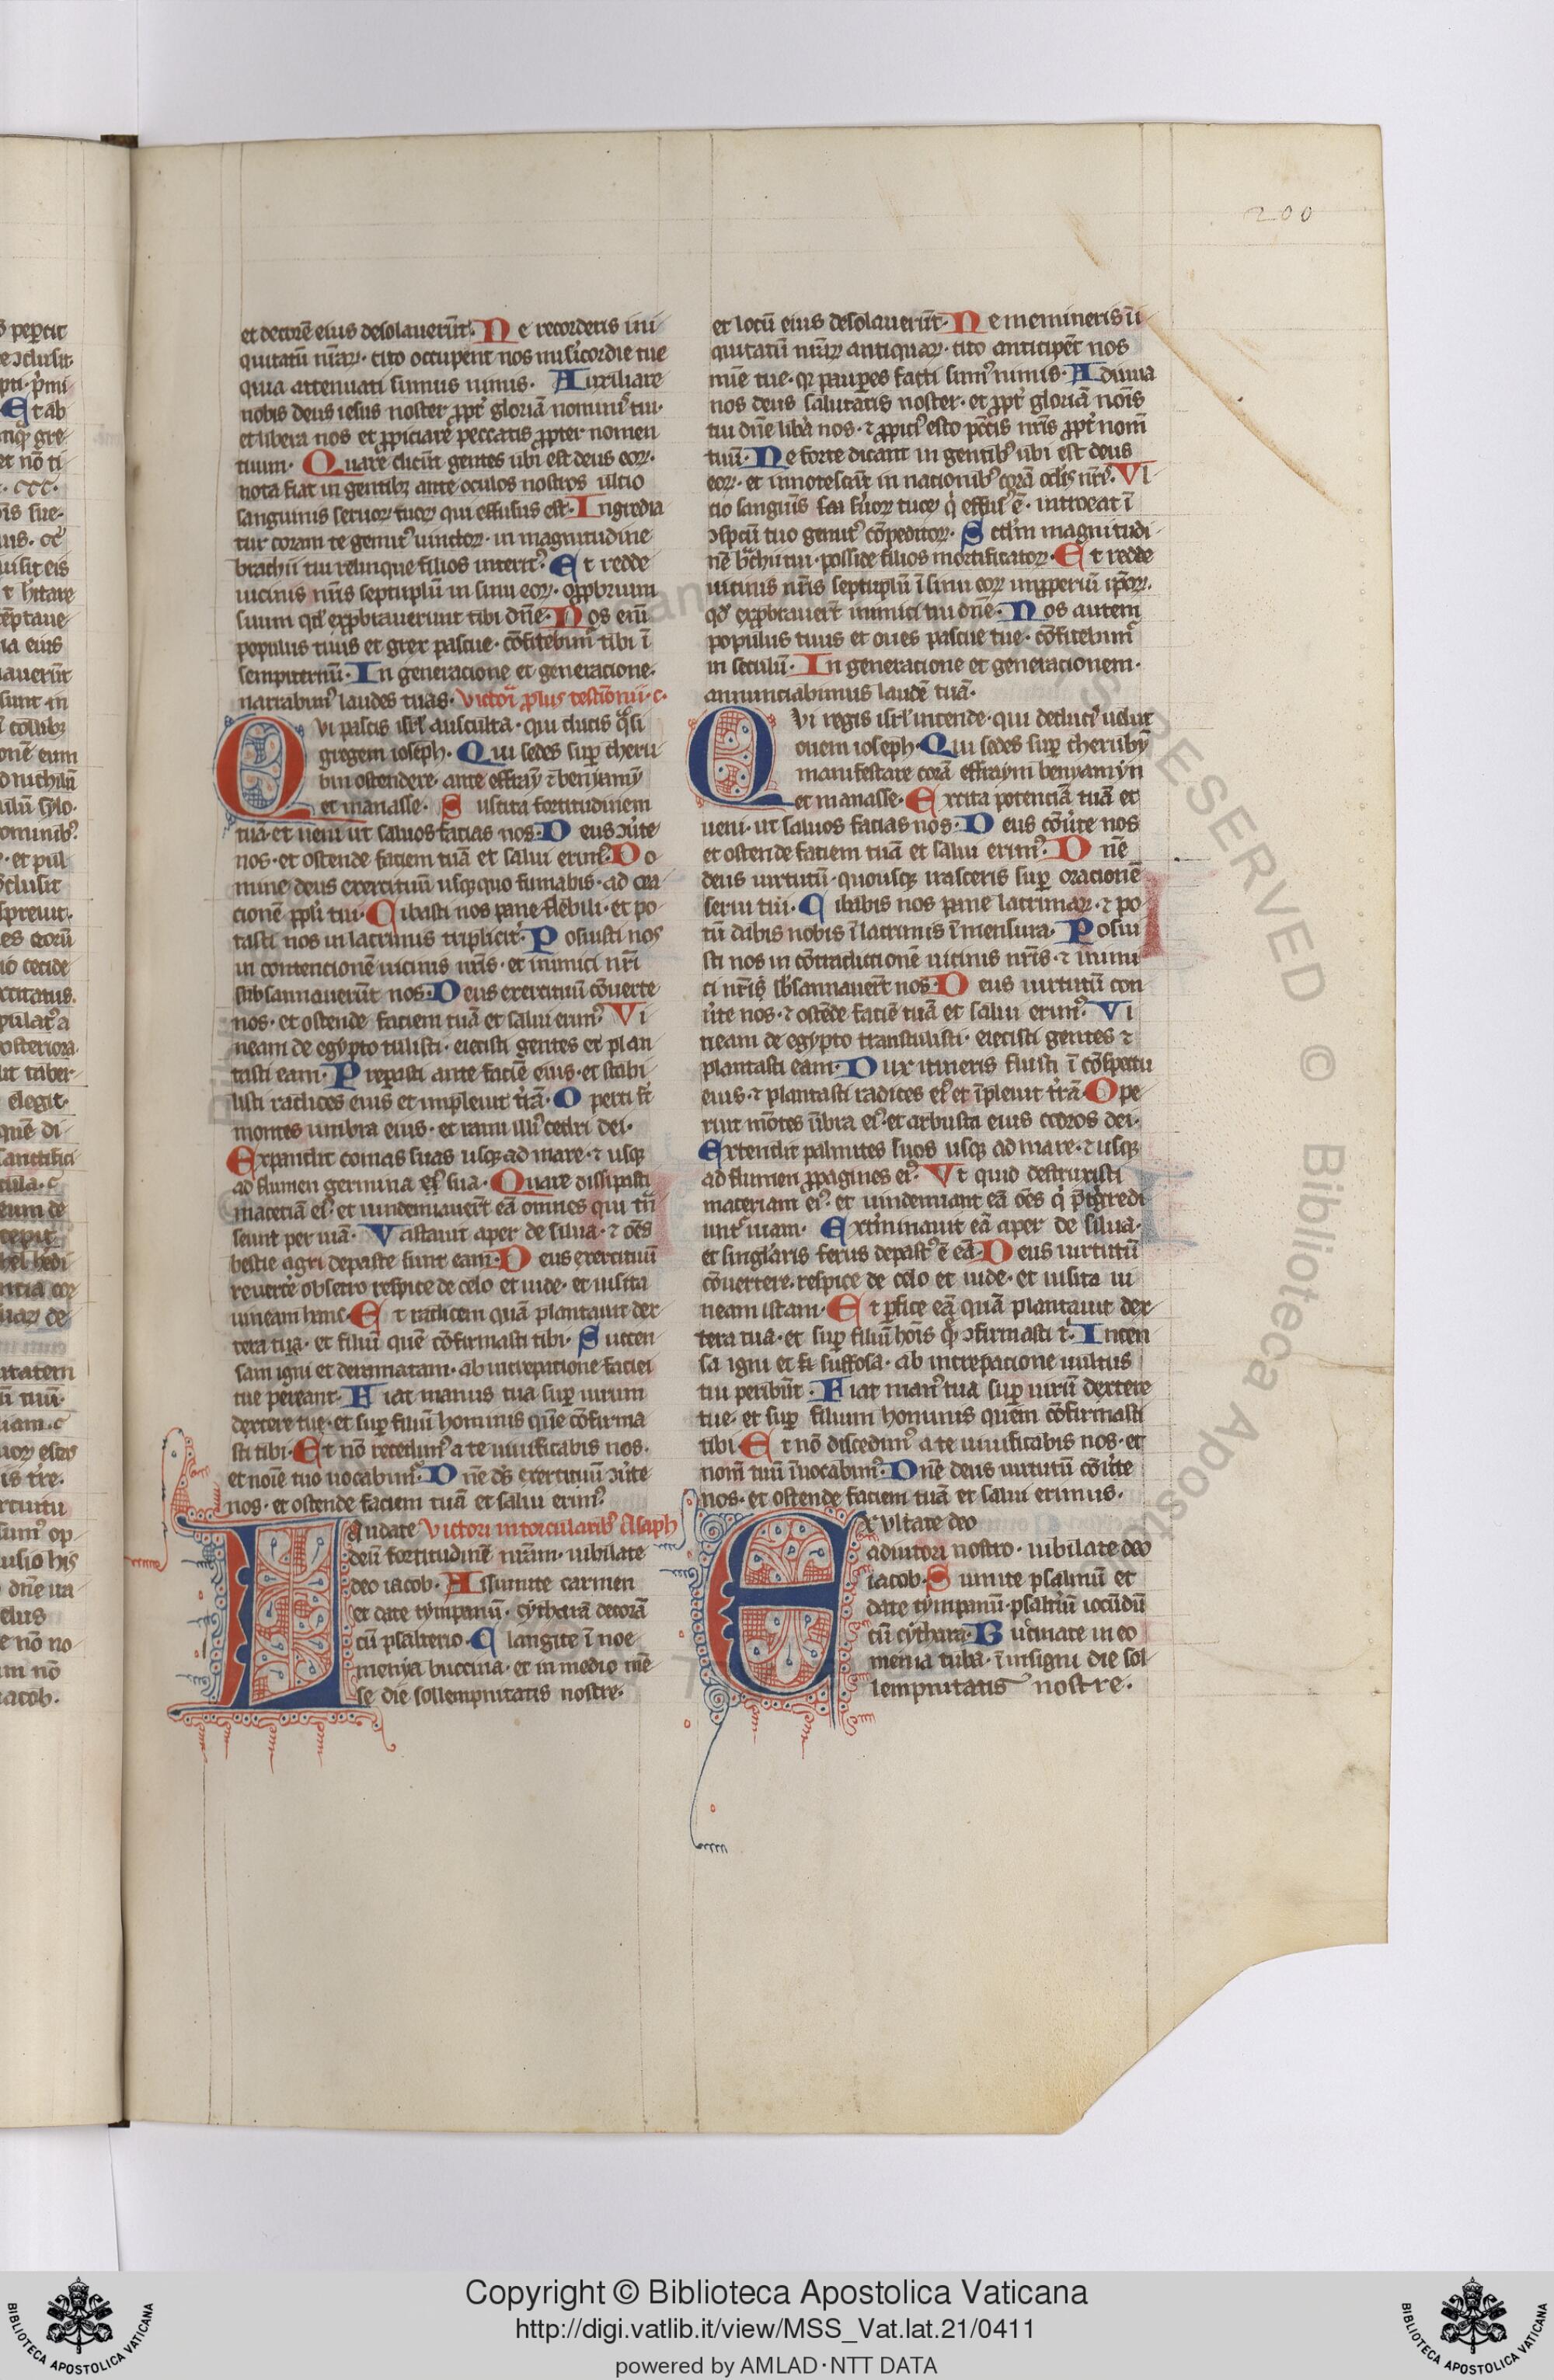 200
et decorē eius desolauerūt. Ne recorderis ini
quitatū nr̄aꝝ. cito occupent nos mis̓icordie tue
quia attenuati sumus nimis. Auxiliare
nobis deus iesus noster ꝓpt̓ gloriā nominis tui.
et libera nos et ꝓpiciare peccatis ꝓpter nomen
tuum. Quare dicūt gentes ubi est deus eoꝝ.
nota fiat in gentibꝫ ante oculos nostros ultio
sanguinis seruoꝝ tuoꝝ qui effusus est. Ingredia
tur coram te gemitꝰ uinctoꝝ. in magnitudine
brachii tui relinque filios interitꝰ. Et redde
uicinis nr̄is septuplū in sinu eoꝝ. oꝓpbrium
suum qd̓ exꝓbrauerunt tibi dn̄e. Nos enī
populus tuus et grex pascue. cōfitebimꝰ tibi ī
sempiternū. In generacione et generacione.
narrabimꝰ laudes tuas. victoī ꝓ lus testīonii. c.
Qvi pascis isrl̓ ausculta. qui ducis qᵃsi
gregem ioseph. Qui sedes suꝑ cheru
bin ostendere. ante effraȳ ⁊ beniamȳ
et manasse. Suscita fortitudinem
tuā. et ueni ut saluos facias nos. Deus ꝯūte
nos. et ostende faciem tuā et salui erimꝰ. Do
mine deus exercituū usqꝫquo fumabis. ad ora
cionē ppl̓i tui. Cibasti nos pane flebili. et po
tasti nos in lacrimis triplicit̓. Posuisti nos
in contencionē uicinis nr̄is. et inimici nr̄i
subsannauerūt nos. Deus exercituū cōuerte
nos. et ostende faciem tuā et salui erimꝰ. Vi
neam de egypto tulisti. eiecisti gentes et plan
tasti eam. Preparasti ante faciē eius. et stabi
listi radices eius et impleuit t̓rā. Operti st̄
montes umbra eius. et rami illiꝰ cedri dei.
Expandit comas suas usqꝫ ad mare. ⁊ usqꝫ
ad flumen germina eiꝰ sua. Quare dissipasti
maceriā eiꝰ. et uindemiauer̄t eā omnes qui trā
seunt per uiā. Vastauit aper de silua. ⁊ oēs
bestie agri depaste sunt eam. Deus exercituū
reuerte obsecro respice de celo et uide. et uisita
uineam hanc. Et radicem quā plantauit dex
tera tua. et filiū quē cōfirmasti tibi. Succen
sam igni et deramatam. ab increpatione faciei
tue pereant. Fiat manus tua suꝑ uirum
dextere tue. et suꝑ filiū hominis quē cōfirma
sti tibi. Et nō recedimꝰ a te uiuificabis nos.
et noīe tuo uocabimꝰ. Dn̄e ds̄ exercituū ꝯūte
nos. et ostende faciem tuā et salui erimꝰ.
Laudate victori in torcularibꝰ Asaph
deū fortitudinē nr̄am. iubilate
deo iacob. Assumite carmen
et date tympanū. cytharā decorā
cū psalterio. Clangite ī noe
menya buccina. et in medio mē
se die sollempnitatis nostre.
et locū eius desolauerūt. Ne memineris ī
quitatū nr̄aꝝ antiquaꝝ. cito anticipēt nos
mīe tue. qꝛ pauꝑes facti sumꝰ nimis. Adiuua
nos deus salutaris noster. et ꝓpt̓ gloriā noīs
tui dn̄e liba nos. ⁊ ꝓpiciꝰ esto pc̄cis nr̄is ꝓpt̓ nom̄
tuū. Ne forte dicant in gentibꝰ ubi est deus
eoꝝ. et innotescāt in nationibꝰ corā oclis̓ nr̄is. Vl
cio sanguis s̄uoꝝ tuoꝝ q̓ effusꝰ ē. introeat ī
ꝯspcū tuo gemitꝰ cōpeditoꝝ. Scd̓m magnitudi
nē bᵃchii tui. posside filios mortificatoꝝ. Et redde
uicinis nr̄is septuplū ī sinu eoꝝ imꝓperiū ip̄oꝝ.
qd̓ exꝓbrauer̄t inimici tui dn̄e. Nos autem
populus tuus et oues pascue tue. cōfitebimꝰ
in seculū. In generacione et generacionem.
annunciabimus laudē tuā.
Qvi regis isrl̓ intende. qui deducis uelut
ouem ioseph. Qui sedes suꝑ cherubȳ
manifestare corā effraym beniamyn
et manasse. Excita potenciā tuā et
ueni. ut saluos facias nos. Deus cōūte nos
et ostende faciem tuā et salui erimꝰ. Dn̄e
deus uirtutū. quousqꝫ irasceris suꝑ oracionē
serui tui. Cibabis nos pane lacrimaꝝ. ⁊ po
tū dabis nobis ī lacrimis ī mensura. Posui
sti nos in cōtradictionē uicinis nr̄is. ⁊ inimi
ci nr̄i sb̓sannauer̄t nos. Deus uirtutū con
ūte nos. ⁊ ostēde faciē tuā et salui erimꝰ. Vi
neam de egypto transtulisti. eiecisti gentes ⁊
plantasti eam. Dux itineris fuisti ī cōspectu
eius. ⁊ plantasti radices eiꝰ et īpleuit t̓rā. Ope
ruit mōtes ūbra eiꝰ. et arbusta eius cedros dei.
Extendit palmites suos usqꝫ ad mare. ⁊ usqꝫ
ad flumen ꝓpagines eiꝰ. Vt quid destruxisti
maceriam eiꝰ. et uindemiant eā oēs q̓ p̄tgredi
untᷣ uiam. Ext̓minauit eā aper de silua.
et singlaris ferus depastꝰ ē eā. Deus uirtutū
cōuertere. respice de celo et uide. et uisita ui
neam istam. Et ꝑfice eā quā plantauit dex
tera tua. et suꝑ filiū hoīs quē ꝯfirmasti t̓. Incen
sa igni et suffosa. ab increpacione uultus
tui peribūt. Fiat manꝰ tua suꝑ uirū dextere
tue. et suꝑ filium hominis quem cōfirmasti
tibi. Et nō discedimꝰ a te uiuificabis nos. et
nom̄ tuū īuocabimꝰ. Dn̄e deus uirtutū cōūte
nos. et ostende faciem tuā et salui erimus.
Exvltate deo
adiutori nostro. iubilate deo
iacob. Sumite psalmū et
date tympanū. psalt̓iū iocūdū
cū cythara. Bucinate in eo
menia tuba. ī insigni die sol
lempnitatis nostre.
Copyright © Biblioteca Apostolica Vaticana
http://digi.vatlib.it/view/MSS_Vat.lat.21/0411
powered by AMLAD·NTT DATA
BIBLIOTECA APOSTOLICA VATICANA
BIBLIOTECA APOSTOLICA VATICANA